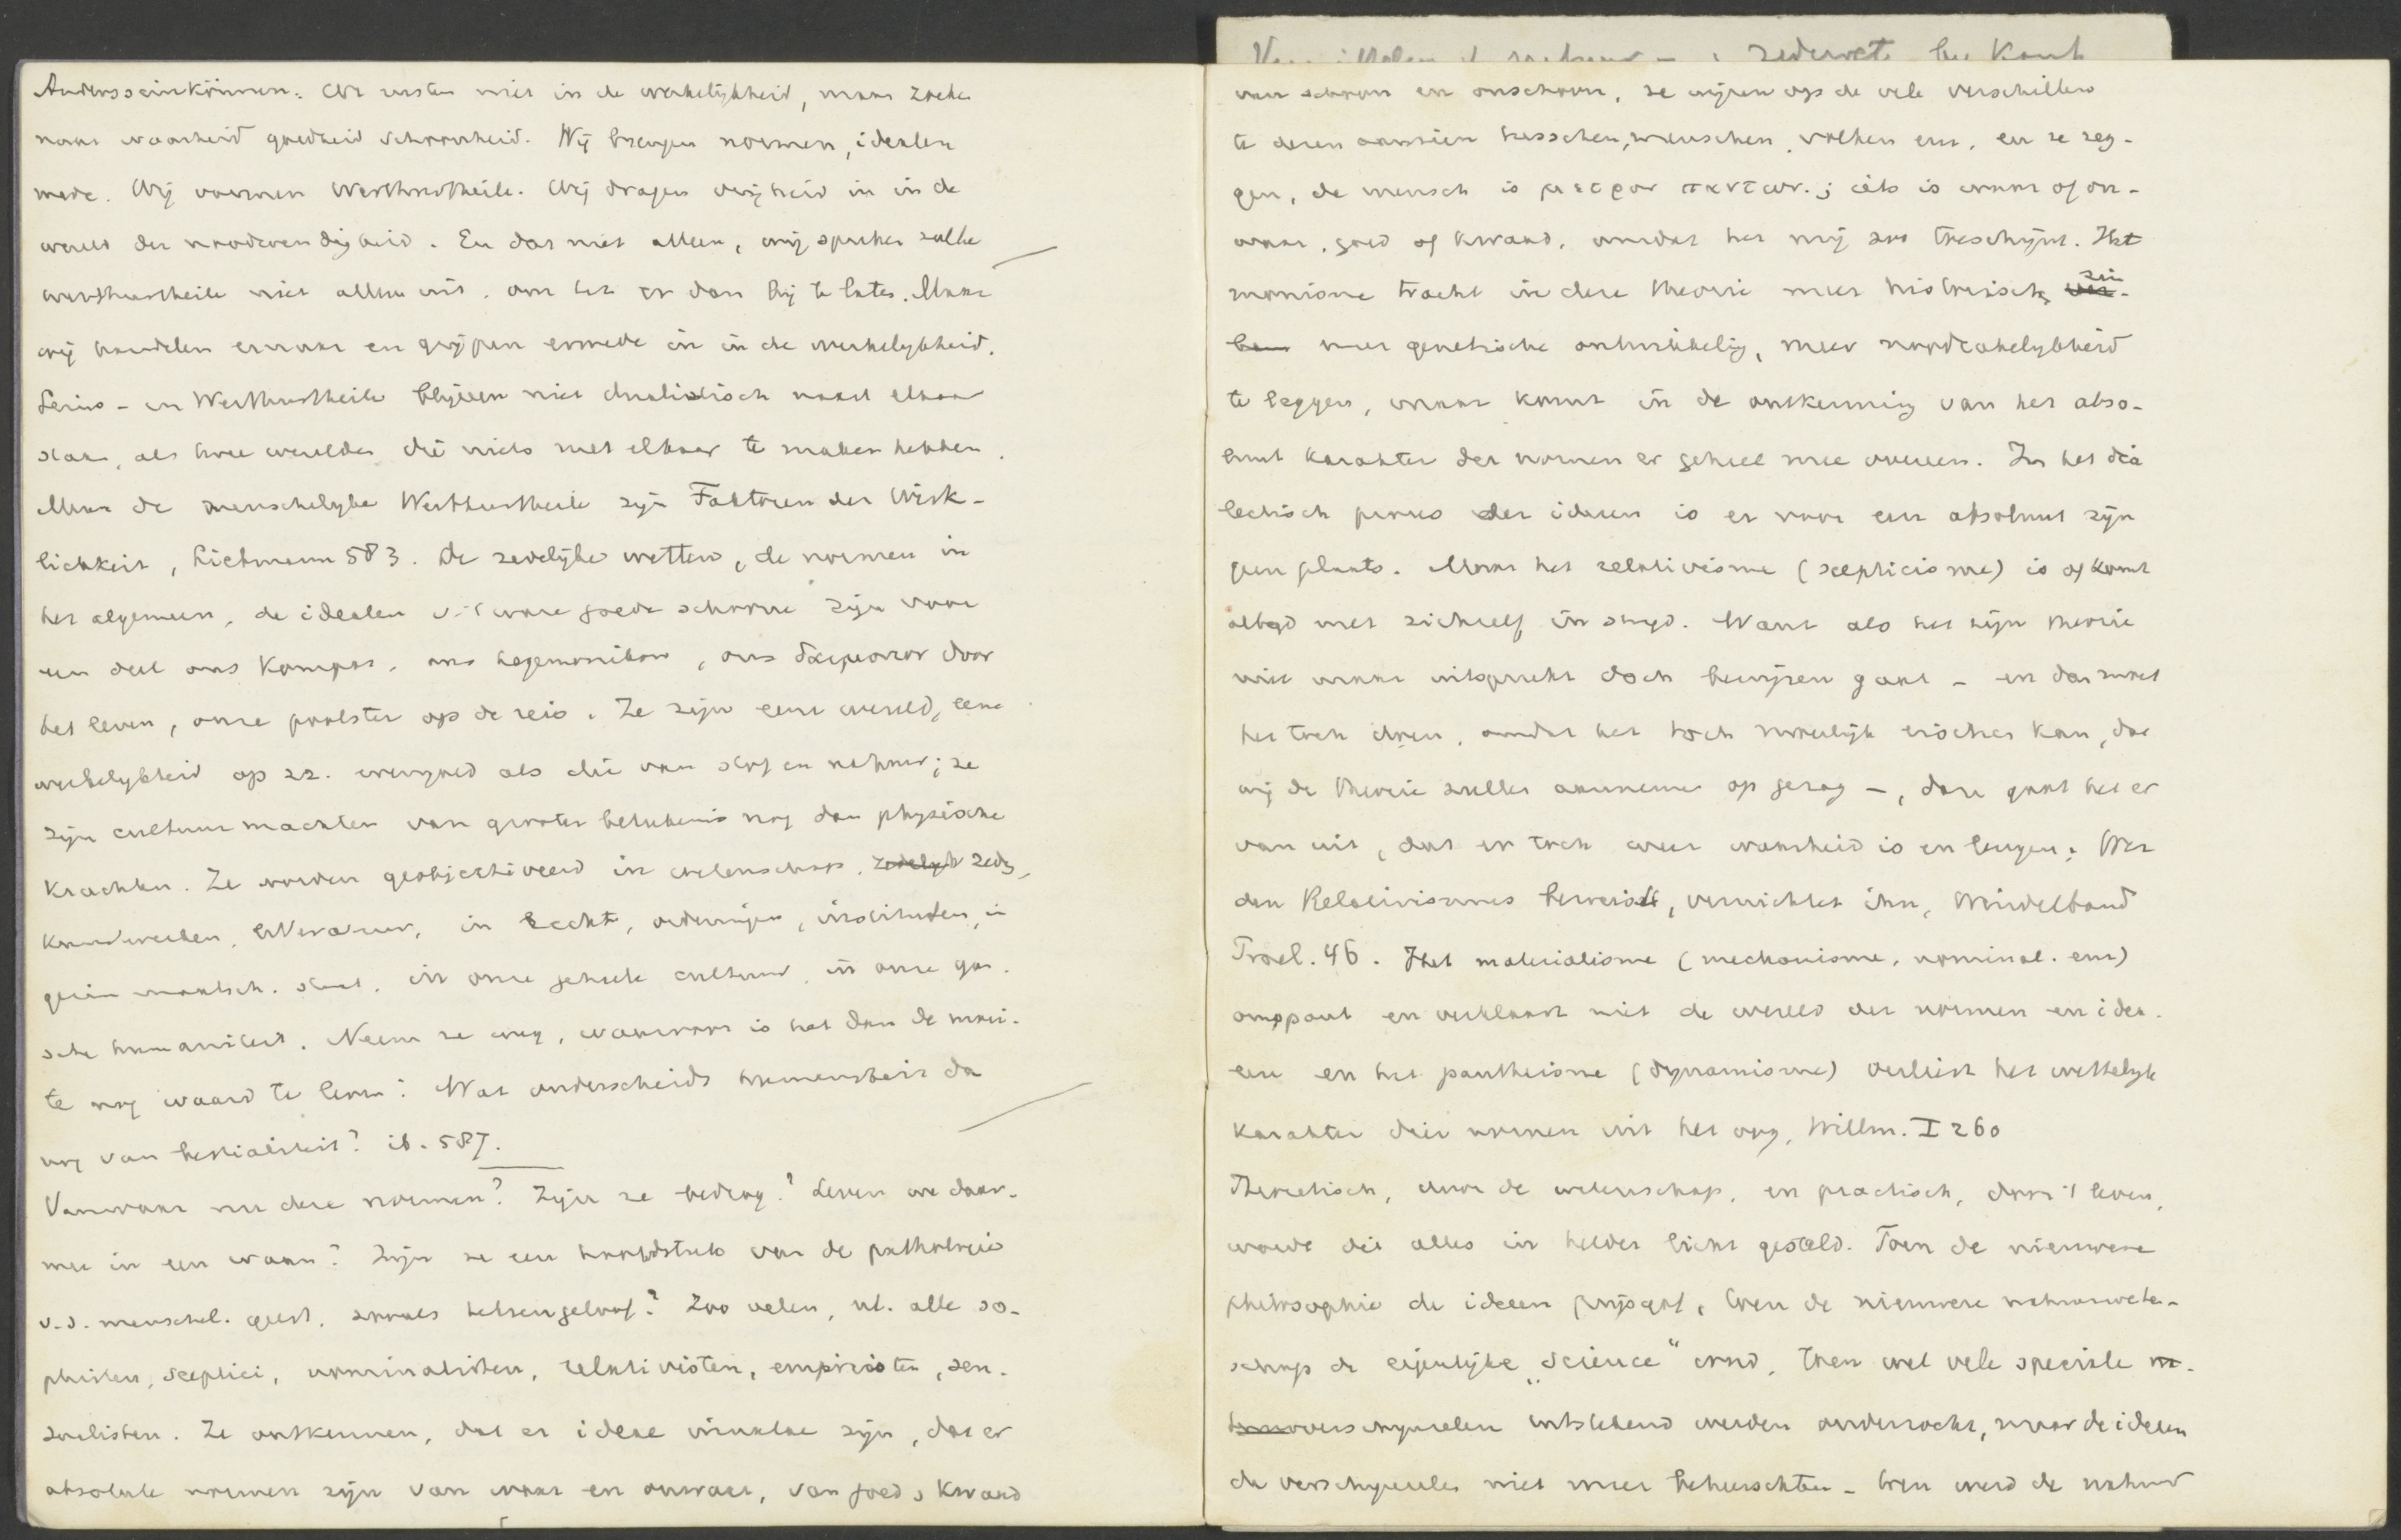 Andersseinkönnen. Wij rusten niet in de werkelijkheid, maar zoeken
naar waarheid goedheid schoonheid. Wij brengen normen, idealen
mede. Wij vormen Werthurtheile. Wij dragen vrijheid in in de
wereld der noodwendigheid. En dat niet alleen, wij spreken zulke
werthurtheile niet alleen uit, om het er dan bij te laten. Maar
wij handelen ernaar en grijpen ermede in in de werkelijkheid.
Seins- en Werthurtheile blijven niet dualistisch naast elkaar
staan, als twee werelden die niets met elkaar te maken hebben.
Maar de menschelijke Werthurtheile zijn Faktoren der Wirk-
lichkeit, Liebmann 583. De zedelijke wetten, de normen in
het algemeen, de idealen v. 't ware goede schoone zijn voor
een deel ons kompas, ons hegemonikon, ons δαιμονιον door
het leven, onze poolster op de reis. Ze zijn eene wereld, eene
werkelijkheid op zz. evengoed als die van stof en natuur; ze
zijn cultuurmachten van grooter beteekenis nog dan physische
krachten. Ze worden geobjectiveerd in wetenschap, zedelijk zeden,
kunstwerken, litteratuur, in recht, ordeningen, instituten, in
gezin maatsch. staat, in onze geheele cultuur in onze gan-
sche humaniteit. Neem ze weg, waarvoor is het dan de moei-
te nog waard te leven? Wat onderscheidt humaniteit dan
nog van bestialiteit? ib. 587.
Vanwaar nu deze normen? Zijn ze bedrog? Leven we daar-
mee in een waan? Zijn ze een hoofdstuk van de pathologie
v.d. menschel. geest, zooals heksengeloof? Zoo velen, nl. alle so-
phisten, sceptici, nominalisten, relativisten, empiristen, sen-
sualisten. Ze ontkennen, dat er ideae innatae zijn, dat er
absolute normen zijn van waar en onwaar, van goed en kwaad
zedewet bij Kant
van schoon en onschoon, ze wijzen op de vele verschillen
te dezen aanzien tusschen menschen, volken enz. en ze zeg-
gen, de mensch is μετρον παντων; iets is waar of on-
waar, goed of kwaad, omdat het mij zoo toeschijnt. Het
monisme tracht in deze theorie meer historische
meer genetische ontwikkeling, meer noodzakelijkheid
te leggen, maar komt in de ontkenning van het abso-
luut karakter der normen er geheel mee overeen. In het dia
lectisch proces der ideeen is er voor een absoluut zijn
geen plaats. Maar het relativisme (scepticisme) is of komt
altijd met zichzelf in strijd. Want als het zijn theorie
niet maar uitspreekt doch bewijzen gaat - en dat moet
het toch doen, omdat het toch moeilijk eischen kan, dat
wij de theorie zullen aannemen op gezag -, dan gaat het er
van uit, dat er toch weer waarheid is en leugen; Wer
den Relativismus beweist, vernichtet ihn, Windelband
Troel. 46. Het materialisme (mechanisme, nominal. enz)
omspant en verklaart niet de wereld der normen en idea-
len en het pantheisme (dynamisme) verliest het wettelijk
karakter dier normen uit het oog, Willm. I 260
Theoretisch, door de wetenschap, en practisch, door 't leven,
werd dit alles in helder licht gesteld. Toen de nieuwere
philosophie de ideeen prijsgaf, toen de nieuwere natuurweten-
schap de eigenlijke "science" werd, toen wel vele speciale na-
tuurverschijnselen uitstekend werden onderzocht, maar de ideeen
de verschijnselen niet meer beheerschten - toen werd de natuur